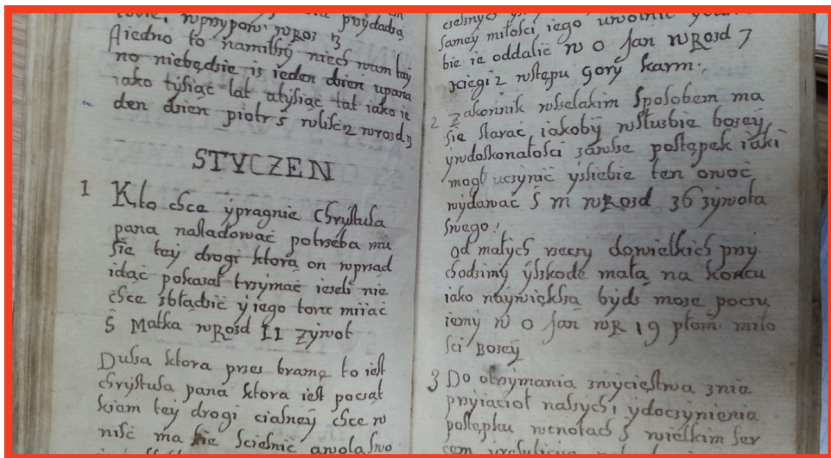 wprzypow: w Roz 13
A iedno to namilszy niech wam tay
no niebędzie is ieden dzien upana
iako tysiąc lat a tysiąc lat iako ie
den dzien piotr S w liscz w rozd 3
STYCZEN
1 Kto chce ypragnie Chrystusa
pana nasladować potrzeba mu
się tey drogi ktorą on wprzod
idąc pokazał trzymać iesli nie
chce zbłądzić y iego toru miiać
S Matka w Rozd II Zywot
Dusza ktora przes bramę to iest
chrystusa pana ktora iest początkiem tey drogi ciasney chce w
niść ma się scieśnić
samey miłosci iego
bie ie oddalić N O Jan w Rozd 7
xięgi 2 wstępu gory karm:
2 Zakonnik wszelakim sposobem ma
się starać, iakoby w służbie bozey
y w doskonałosci zawsze postępek iaki
mogł uczynić y s siebie ten owoc
wydawać S M w Rozd 36 zywota
swego:
Od małych rzeczy do wielkich przy
chodzimy y szkode mała na końcu
iako naywiększa bydz moze poczu
iemy N O Jan w R 19 płom: miło
ści Bozey
3 Do otrzymania zwycięstwa z nie
przyiacioł naszych y do czynienia
postępku w cnotach S wielkim ser
cem